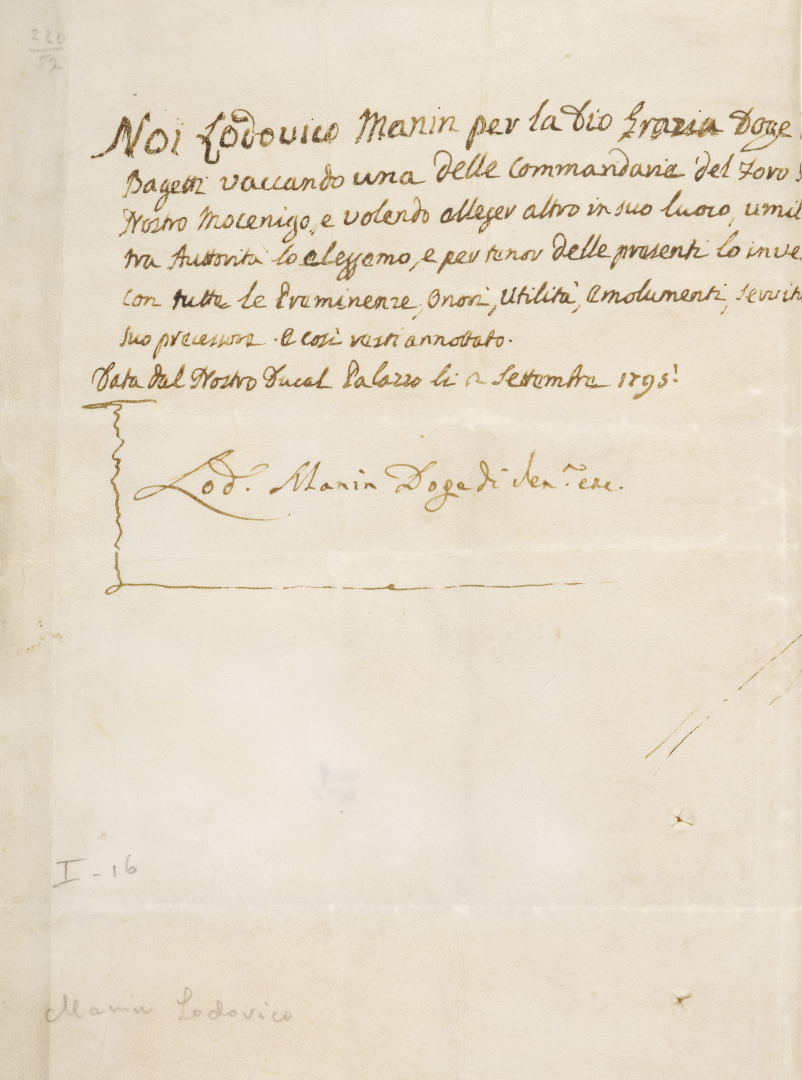 220
52
Noi Lodovico Manin per la Dio Grazia Doge
Bagetti vaccando una delle Commandarie del Foro
Nostro Mocenigo, e volendo alleger altro in suo luoco, umil
tra Auttorità lo eleggemo, e per tenor delle presenti lo inve
con tutte le Preminenze, Onori, Utilità, Emolumenti, Servitù
suo precessore. E così resti annottato.
Data dal Nostro Ducal Palazzo li 2 Settembre 1795:
Lod. Manin Doge di Ven.
I - 16
Manin Lodovico